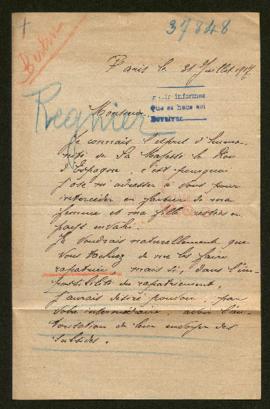 37848
Paris le 21 Juillet 1917
Regnier
Monsieur
Je connais l'esprit d'huma-
nité de Sa Majesté le Roi
d'Espagne c'est pourquoi
j'ose m'adresser à vous pour
intercéder en faveur de ma
femme et ma fille restées en
pays envahi.
Je voudrais naturellement que
vous tachiez de me les faire
rapatrier, mais si, dans l'im-
possibilité du rapatriement,
j'aurais désiré pouvoir par
votre intermédiaire avoir l'au-
torisation de leur envoyer des
subsides.